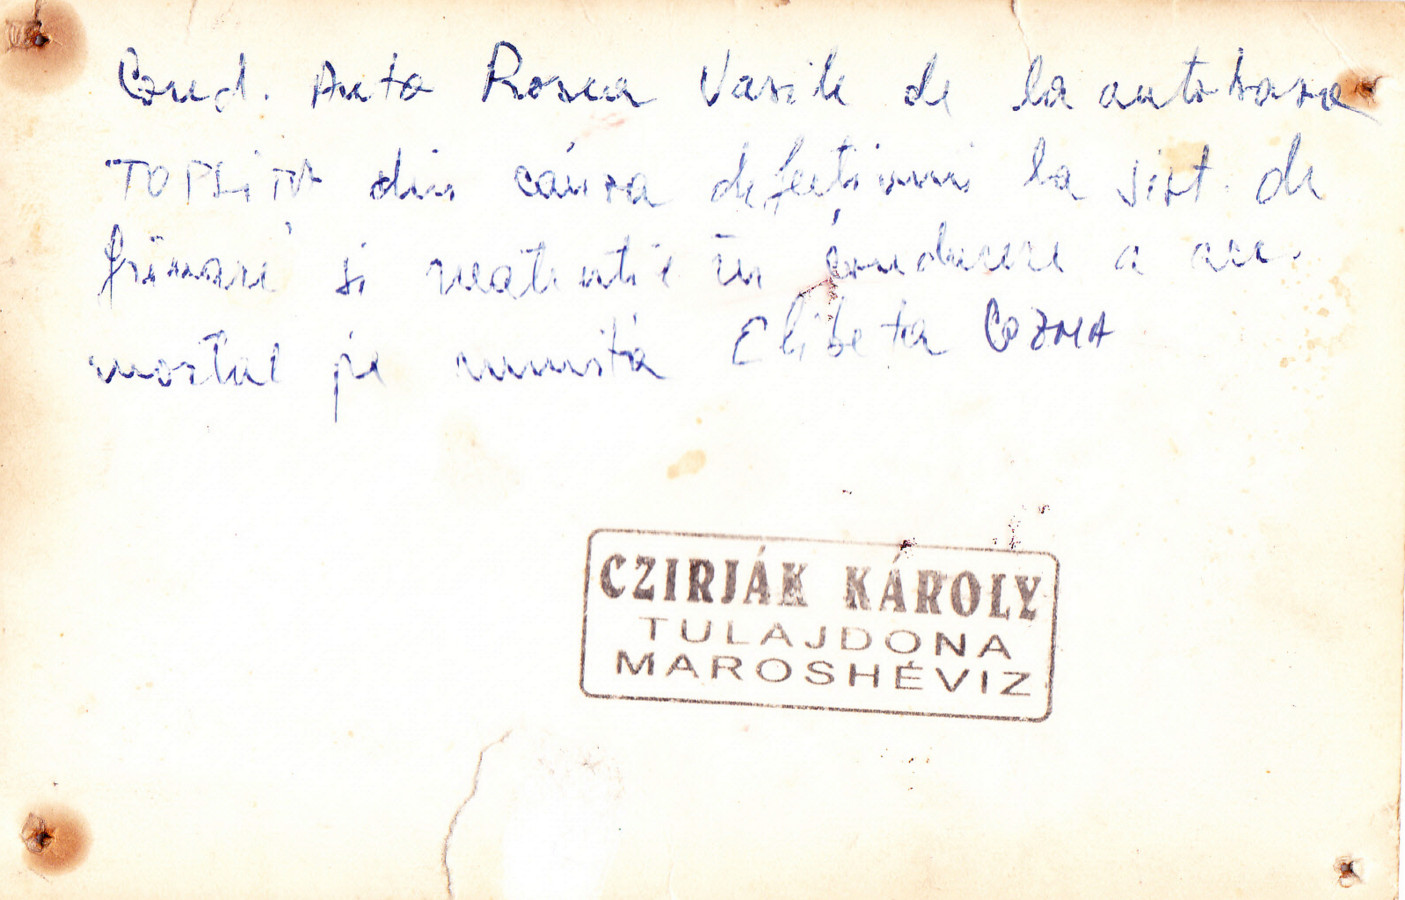 Cond. Auto Rosca Vasile de la autobaza
TOPLITA din cáuza defectiunii la sist. de
frînare si neatentie în conducere a acc.
mortal pe numita Elibeta COZMA
CZIRJÁK KÁROLY
TULAJDONA
MAROSHÉVIZ